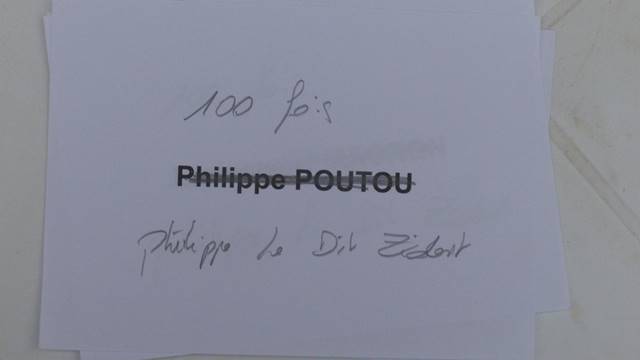 100 fois
Philippe POUTOU
Philippe Le Dit